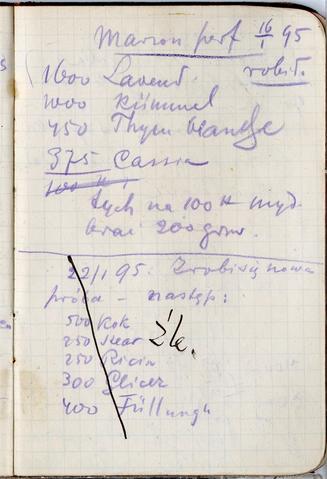 Marron perf 16/1 95
robił.
1600 Lavend.
1000 Kümmel
450 Thym blanche
375 Cassia
tych na 100 ℔ myd.
brać 200 grm.
22/I 95. Zrobić nowa
próba - następ:
500 Kok
250 Stear Źle.
250 Ricin
300 Glicer
400 Füllung